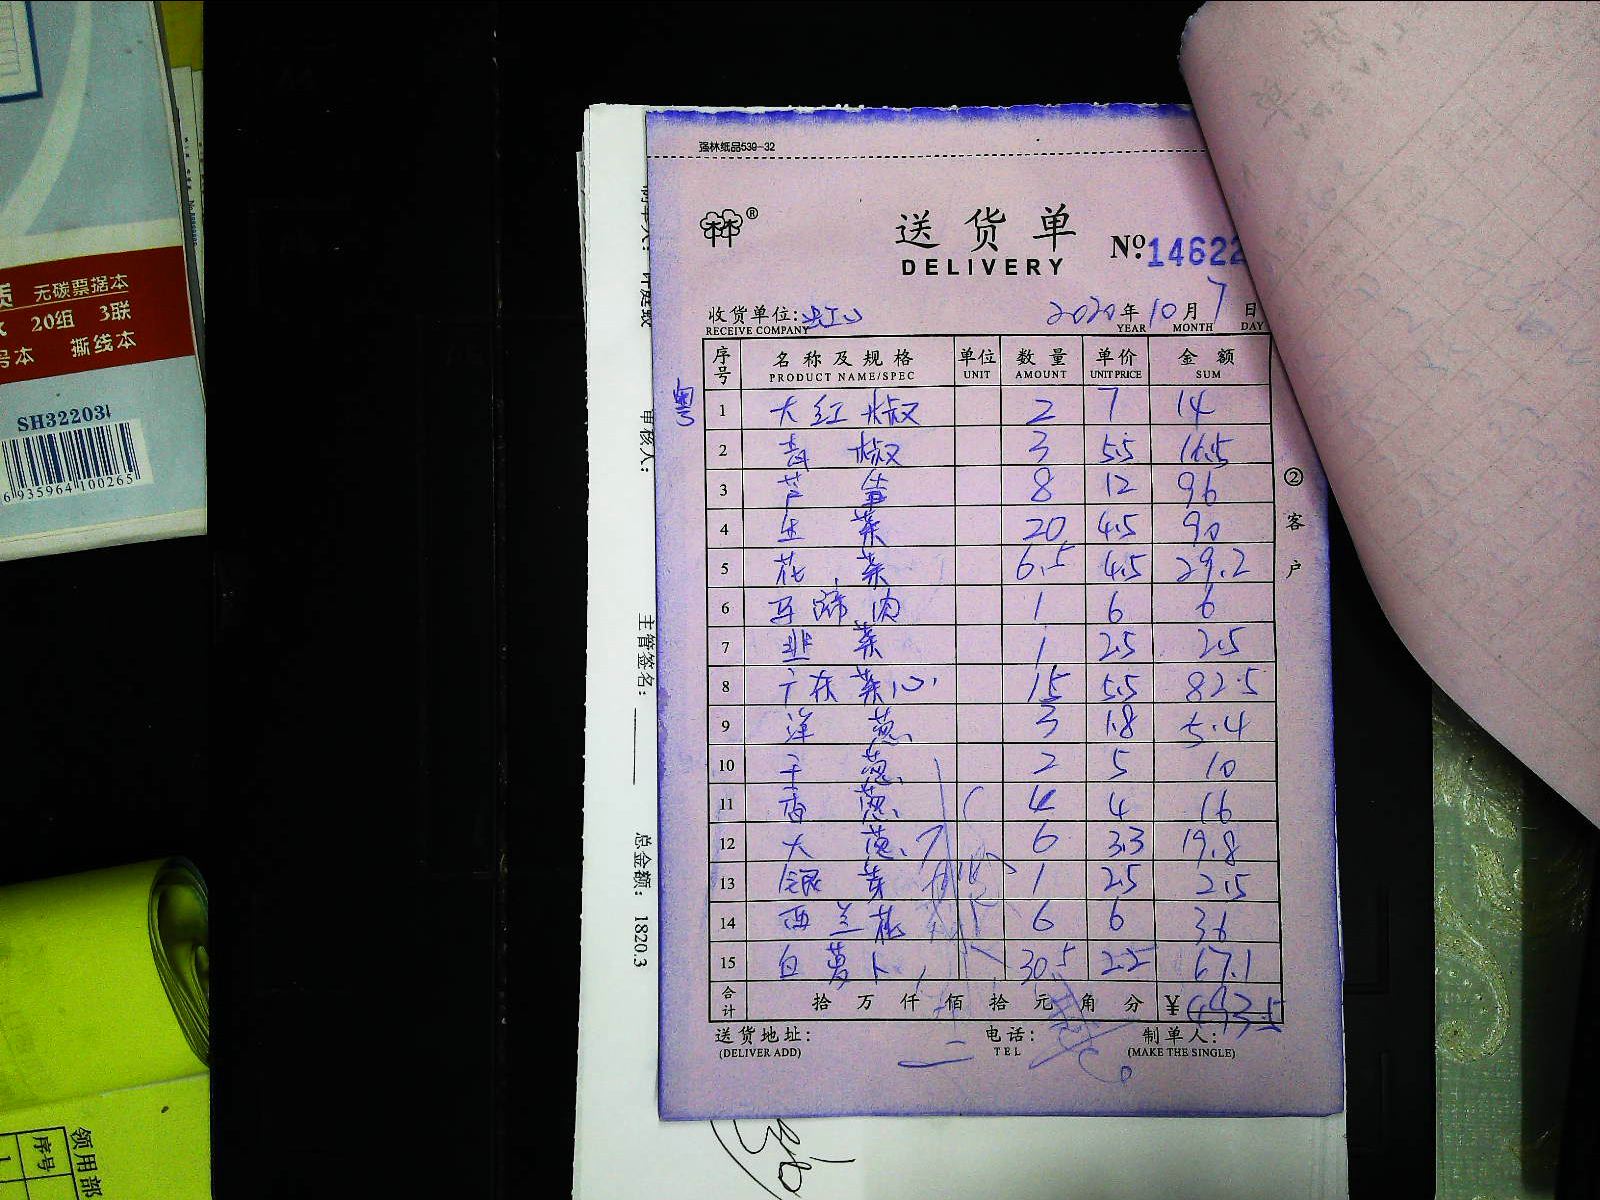 强林纸品539-32
送货单
DELIVERY
No. 14622
收货单位:
RECEIVE COMPANY
2020年10月7日
YEAR MONTH DAY
序号 名称及规格 单位 数量 单价 金额
PRODUCT NAME/SPEC UNIT AMOUNT UNIT PRICE SUM
粤
1 大红椒 2 7 14
2 青椒 3 5.5 16.5
3 芦笋 8 12 96
4 生菜 20 4.5 90
5 花菜 6.5 4.5 29.2
6 马蹄肉 1 6 6
7 韭菜 1 2.5 2.5
8 广东菜心 15 5.5 82.5
9 洋葱 3 1.8 5.4
10 干葱 2 5 10
11 香葱 4 4 16
12 大葱 6 3.3 19.8
13 银芽 1 2.5 2.5
14 西兰花 6 6 36
15 白萝卜 30.5 2.2 67.1
合计 拾万仟佰拾元角分 ¥493.5
送货地址: 电话: 制单人:
(DELIVER ADD) TEL (MAKE THE SINGLE)
②客户
审核人:
主管签名:
总金额: 1820.3
无碳票据本
20组 3联
撕线本
SH32203
6935964100265
领用部
序号
1